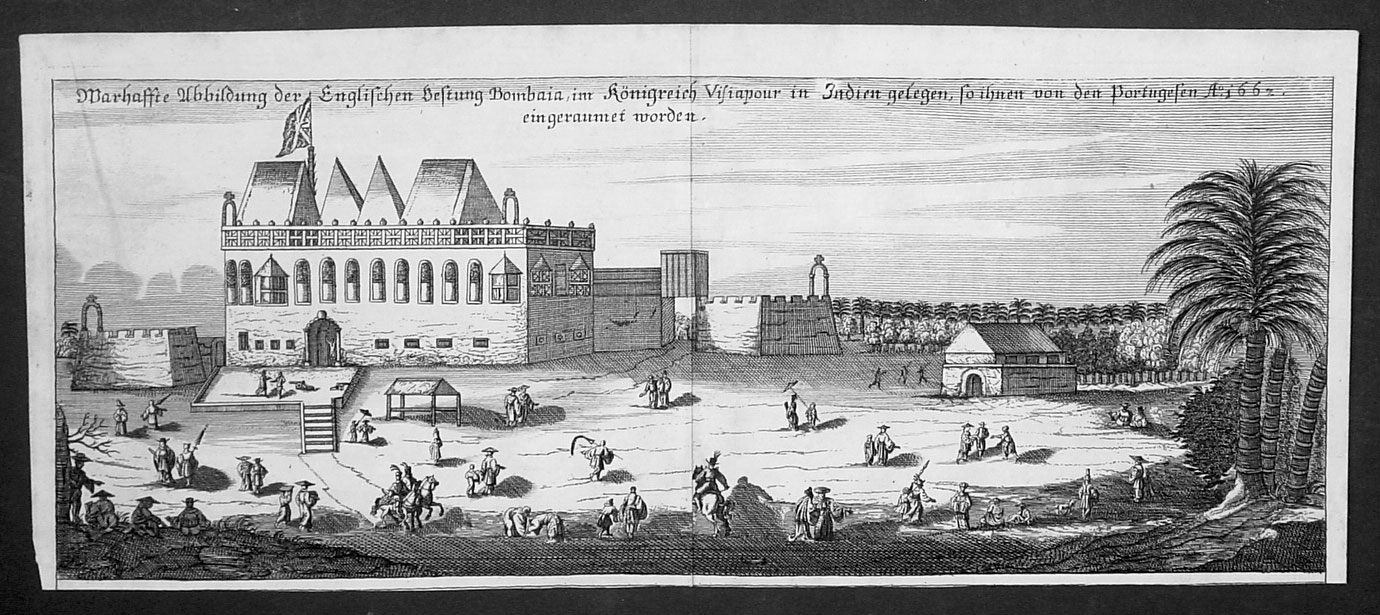 Warhaffte Abbildung der Englischen Vestung Bombaia, im Königreich Visiapour in Indien gelegen, so ihnen von den Portugesen Aº. 1662.
eingeraumet worden.